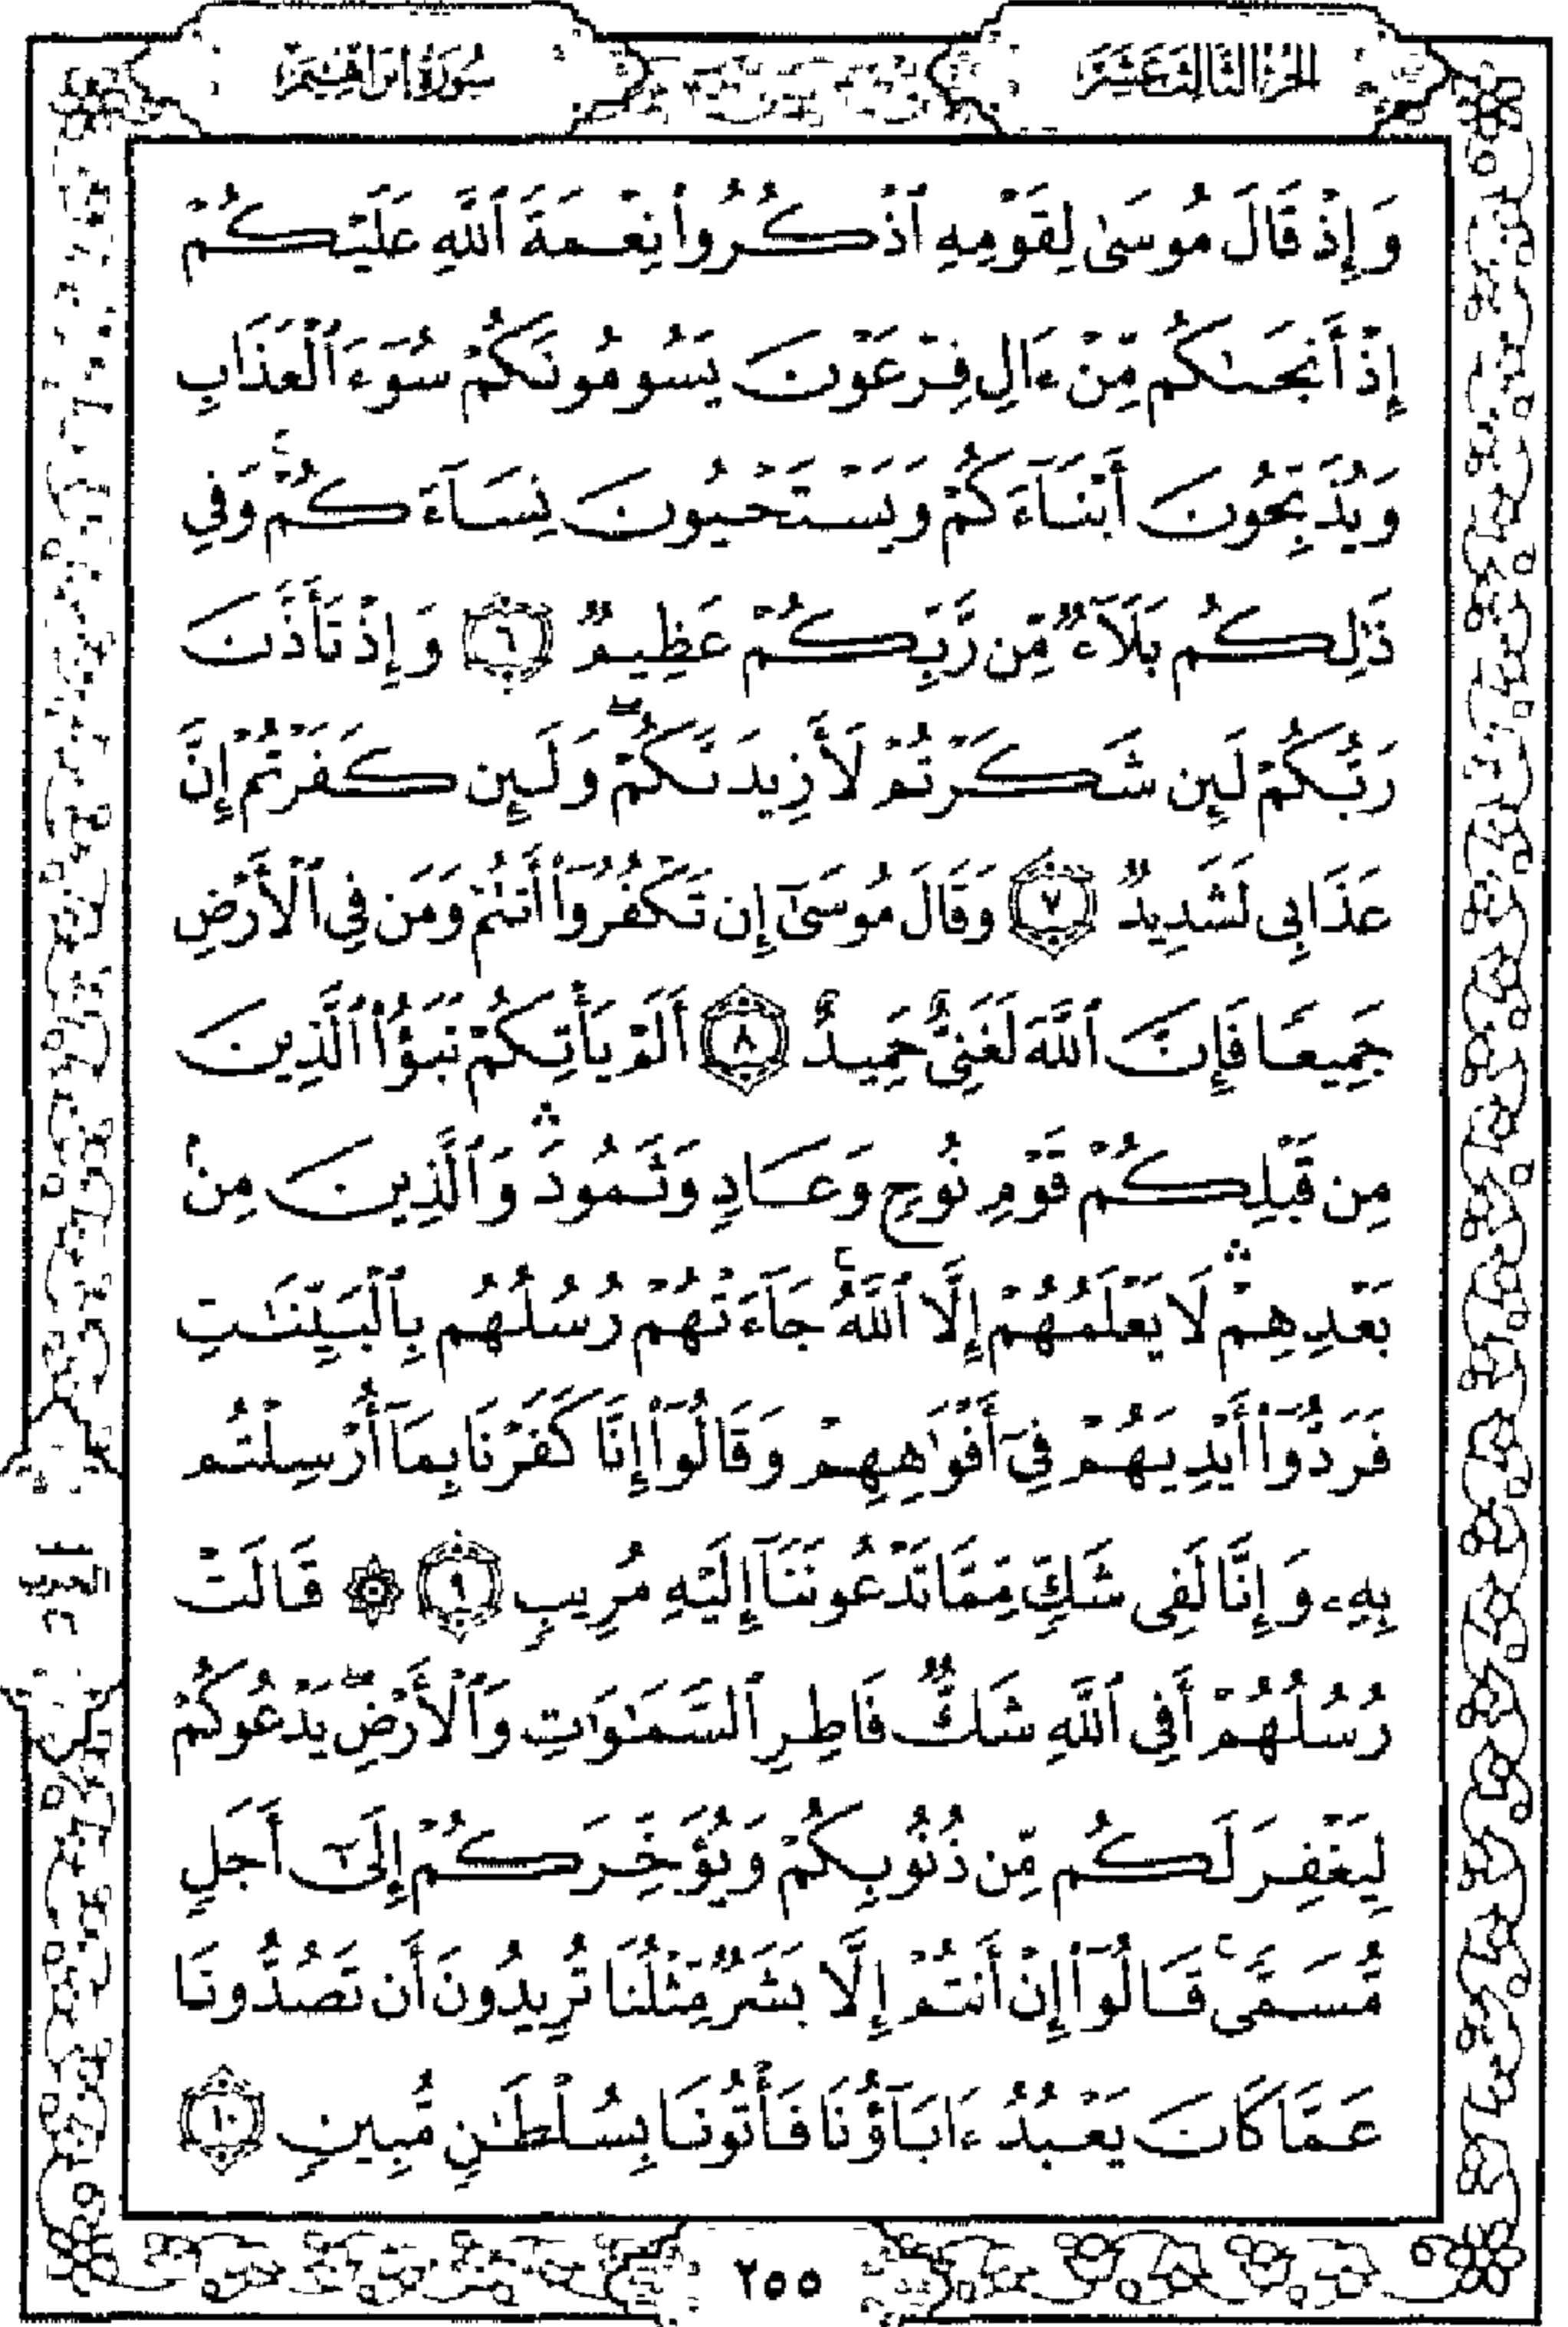 الجزء الثالث عشر
سورة إبراهيم
وَإِذْ قَالَ مُوسَىٰ لِقَوْمِهِ ٱذْكُرُوا۟ نِعْمَةَ ٱللَّهِ عَلَيْكُمْ
إِذْ أَنجَىٰكُم مِّنْ ءَالِ فِرْعَوْنَ يَسُومُونَكُمْ سُوٓءَ ٱلْعَذَابِ
وَيُذَبِّحُونَ أَبْنَآءَكُمْ وَيَسْتَحْيُونَ نِسَآءَكُمْ ۚ وَفِى
ذَٰلِكُم بَلَآءٌ مِّن رَّبِّكُمْ عَظِيمٌ ٦ وَإِذْ تَأَذَّنَ
رَبُّكُمْ لَئِن شَكَرْتُمْ لَأَزِيدَنَّكُمْ ۖ وَلَئِن كَفَرْتُمْ إِنَّ
عَذَابِى لَشَدِيدٌ ٧ وَقَالَ مُوسَىٰٓ إِن تَكْفُرُوٓا۟ أَنتُمْ وَمَن فِى ٱلْأَرْضِ
جَمِيعًا فَإِنَّ ٱللَّهَ لَغَنِىٌّ حَمِيدٌ ٨ أَلَمْ يَأْتِكُمْ نَبَؤُا۟ ٱلَّذِينَ
مِن قَبْلِكُمْ قَوْمِ نُوحٍ وَعَادٍ وَثَمُودَ ۛ وَٱلَّذِينَ مِنۢ
بَعْدِهِمْ ۛ لَا يَعْلَمُهُمْ إِلَّا ٱللَّهُ ۚ جَآءَتْهُمْ رُسُلُهُم بِٱلْبَيِّنَٰتِ
فَرَدُّوٓا۟ أَيْدِيَهُمْ فِىٓ أَفْوَٰهِهِمْ وَقَالُوٓا۟ إِنَّا كَفَرْنَا بِمَآ أُرْسِلْتُم
بِهِۦ وَإِنَّا لَفِى شَكٍّ مِّمَّا تَدْعُونَنَآ إِلَيْهِ مُرِيبٍ ٩ ۞ قَالَتْ
رُسُلُهُمْ أَفِى ٱللَّهِ شَكٌّ فَاطِرِ ٱلسَّمَٰوَٰتِ وَٱلْأَرْضِ ۖ يَدْعُوكُمْ
لِيَغْفِرَ لَكُم مِّن ذُنُوبِكُمْ وَيُؤَخِّرَكُمْ إِلَىٰٓ أَجَلٍ
مُّسَمًّى ۚ قَالُوٓا۟ إِنْ أَنتُمْ إِلَّا بَشَرٌ مِّثْلُنَا تُرِيدُونَ أَن تَصُدُّونَا
عَمَّا كَانَ يَعْبُدُ ءَابَآؤُنَا فَأْتُونَا بِسُلْطَٰنٍ مُّبِينٍ ١٠
٢٥٥